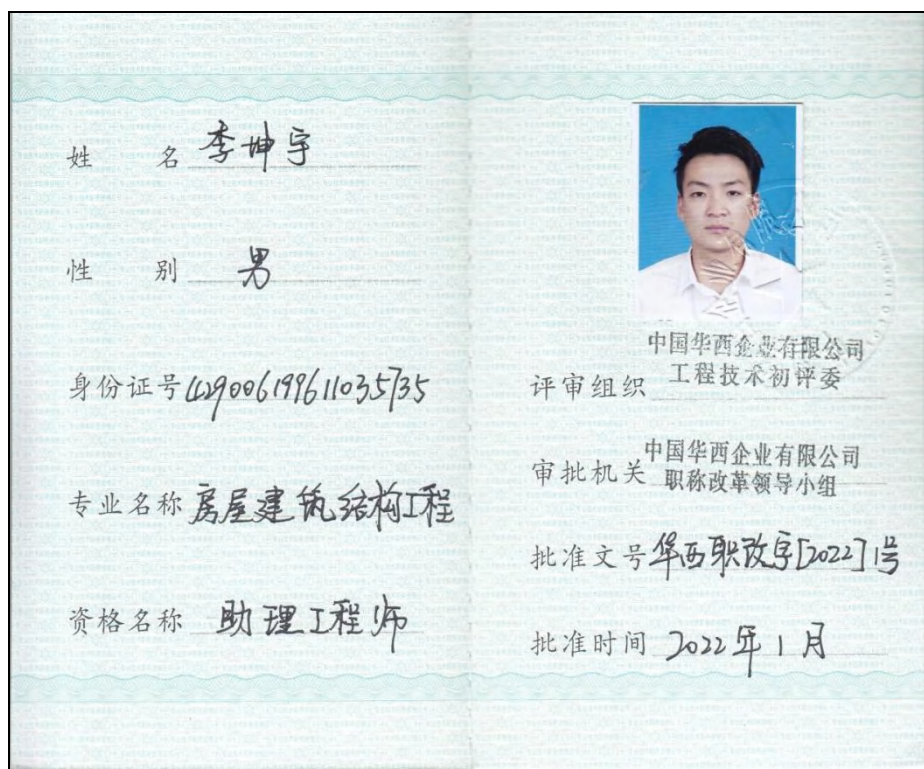 姓名 李坤宇
性别 男
身份证号 429006199611035735
专业名称 房屋建筑结构工程
资格名称 助理工程师
中国华西企业有限公司
评审组织 工程技术初评委
中国华西企业有限公司
审批机关 职称改革领导小组
批准文号 华西职改字[2022]1号
批准时间 2022年1月